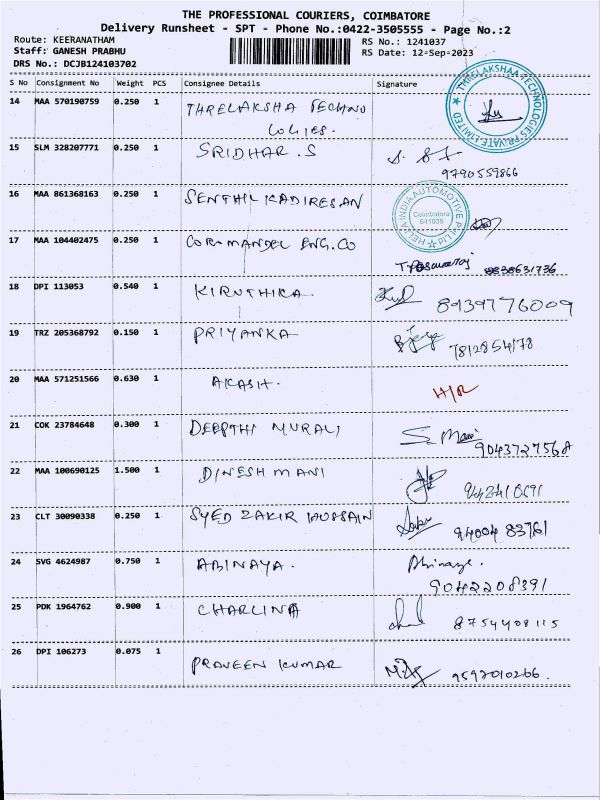 THE PROFESSIONAL COURIERS, COIMBATORE
Delivery Runsheet - SPT - Phone No.:0422-3505555 - Page No.:2
Route: KEERANATHAM RS No.: 1241037
Staff: GANESH PRABHU RS Date: 12-Sep-2023
DRS No.: DCJB124103702
S No Consignment No Weight PCS Consignee Details Signature
14 MAA 570190759 0.250 1 THRELAKSHA TECHNO
LOGIES.
THRELAKSHAA TECHNOLOGIES PRIVATE LIMITED
15 SLM 328207771 0.250 1 SRIDHAR.S
9790559866
16 MAA 861368163 0.250 1 SENTHIL KADIRESAN
HELLA INDIA AUTOMOTIVE PVT LTD
Coimbatore
641035
17 MAA 104402475 0.250 1 COROMANDEL ENG.CO
9838631736
18 DPI 113053 0.540 1 KIRUTHIKA 8939776009
19 TRZ 205368792 0.150 1 PRIYANKA 7812854178
20 MAA 571251566 0.630 1 AKASH. H/R
21 COK 23784648 0.300 1 DEEPTHI MURALI S. Mani
9043727568
22 MAA 100690125 1.500 1 DINESH MANI
23 CLT 30090338 0.250 1 SYED ZAKIR HUSSAIN 94004 83761
24 SVG 4624987 0.750 1 ABINAYA. Abinaya.
9042208391
25 PDK 1964762 0.900 1 CHARLINA 8754408115
26 DPI 106273 0.075 1 PRAVEEN KUMAR 9597010266.